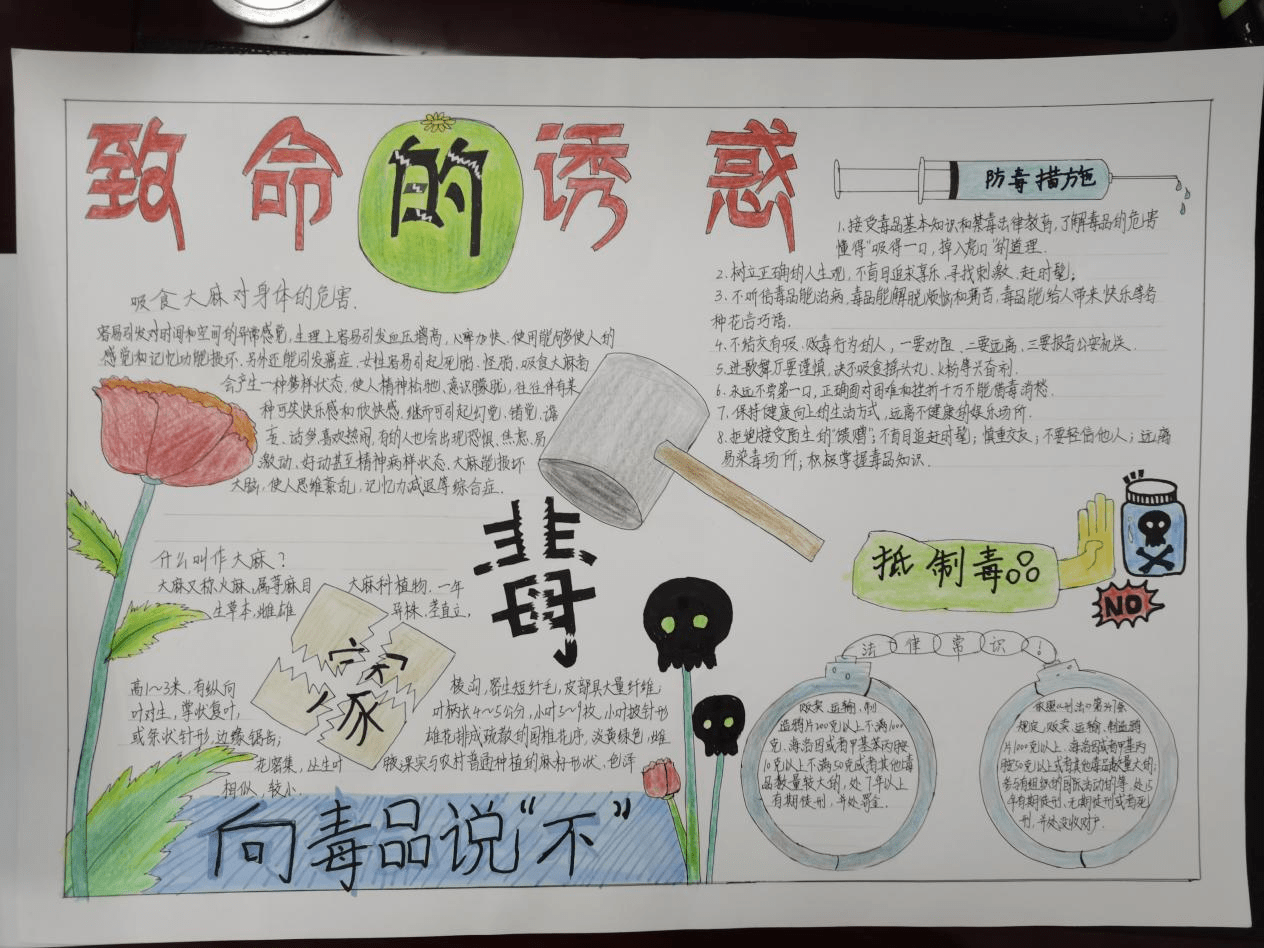 致命的诱惑
防毒措施
1.接受毒品基本知识和禁毒法律教育,了解毒品的危害
懂得"吸得一口,掉入虎口"的道理.
2.树立正确的人生观,不盲目追求享乐、寻找刺激、赶时髦;
3.不听信毒品能治病,毒品能解脱烦恼和痛苦,毒品能给人带来快乐等各
种花言巧语.
4.不结交有吸、贩毒行为的人,一要劝阻、二要远离、三要报告公安机关.
5.进歌舞厅要谨慎,决不吸食摇头丸、K粉等兴奋剂.
6.永远不尝第一口,正确面对困难和挫折千万不能借毒消愁.
7.保持健康向上的生活方式,远离不健康的娱乐场所.
8.拒绝接受陌生的"馈赠";不盲目追赶时髦;慎重交友;不要轻信他人;远离
易染毒场所;积极掌握毒品知识.
吸食大麻对身体的危害.
容易引发对时间和空间的异常感觉,生理上容易引发血压增高,心率加快、使用能够多使人的
感觉和记忆功能损坏.另外还能引发癌症、女性容易引起死胎、怪胎.吸食大麻者
会产生一种梦样状态,使人精神松弛、意识朦胧,往往伴有某
种可笑快乐感和欣快感.继而可引起幻觉、错觉、谵
妄、话多、喜欢热闹,有的人也会出现恐惧、焦虑、易
激动、好动甚至精神病样状态.大麻能损坏
大脑,使人思维紊乱,记忆力减退等综合症.
毒
什么叫作大麻?
大麻又称火麻,属荨麻目 大麻科植物.一年
生草本,雌雄 异株,茎直立,
家
高1~3米,有纵向 棱沟,密生短纤毛,皮部具大量纤维;
叶对生,掌状复叶, 叶柄长4~5公分,小叶5~9枚,小叶披针形
或条状针形,边缘锯齿; 雄花排成疏散的圆锥花序,淡黄绿色,雌
花密集,丛生叶 腋果实与农村普通种植的麻籽形状、色泽
相似,较小.
向毒品说"不"
抵制毒品
NO
法律常识!
贩卖、运输、制
造鸦片200克以上不满1000
克、海洛因或者甲基苯丙胺
10克以上不满50克或者其他毒
品数量较大的,处7年以上
有期徒刑,并处罚金.
依照《刑法》第347条
规定,贩卖、运输、制造鸦
片1000克以上、海洛因或者甲基苯丙
胺50克以上或者其他毒品数量大的;
参与有组织的国际活动的等,处15
年有期徒刑、无期徒刑或者死
刑,并处没收财产.